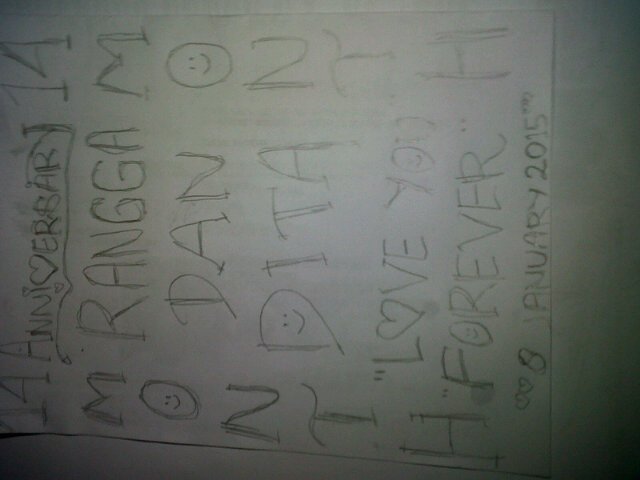 14 ANNI♡ERBARY 14
M RANGGA M
☺ DAN ☺
N DITA N
T "LOVE YOU" T
H "FOREVER" H
♡♡ 8 JANUARY 2015